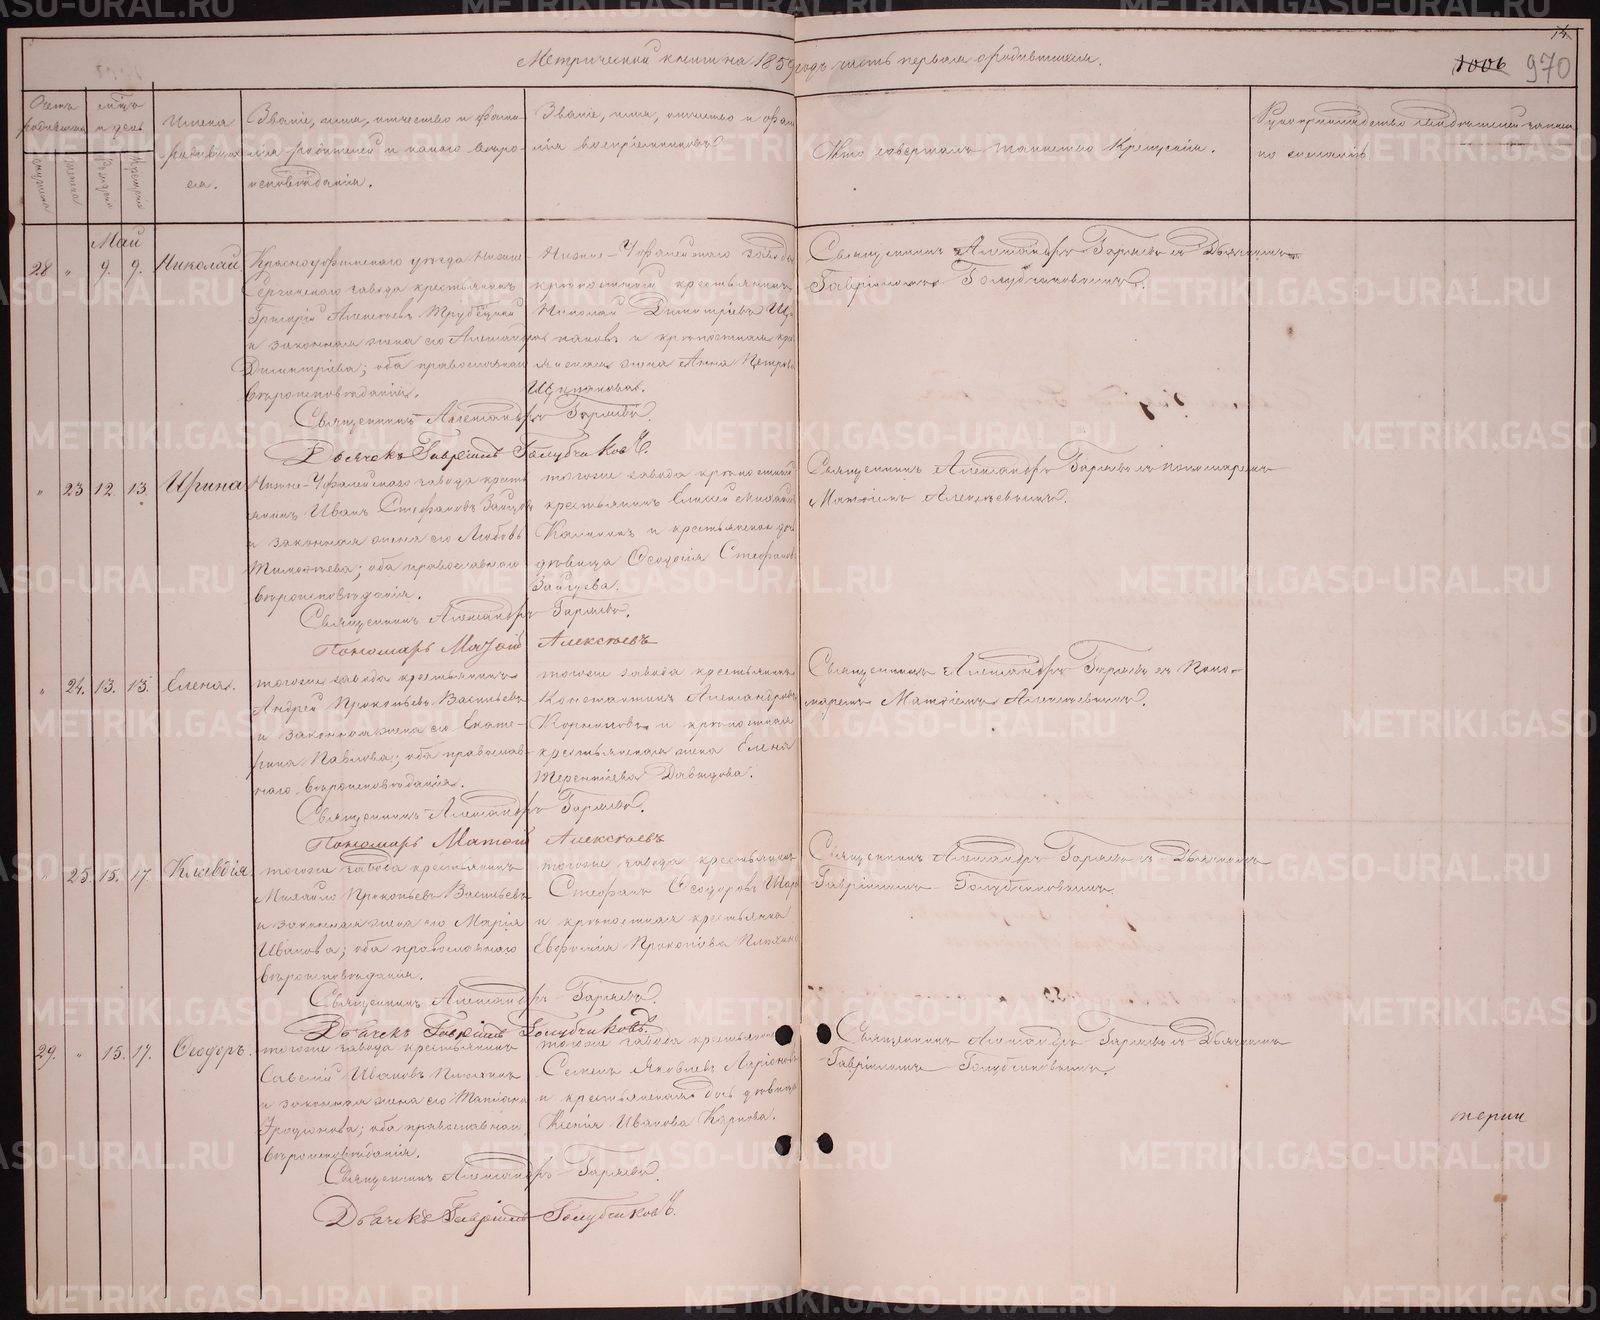 Метрической книги на 1859 годъ часть первая о родившихся.
970
Счетъ родившихся
мѣсяцъ и день
Имена родившихся.
Званіе, имя, отчество и фамилія родителей и какого вѣроисповѣданія.
Званіе, имя, отчество и фамилія воспріемниковъ
Кто совершалъ таинство Крещенія.
Рукоприкладство свидѣтелей записи по желанію
Май
28 " 9. 9. Николай
Красноуфимскаго уѣзда Нижне-
Сергинскаго завода крестьянинъ
Григорій Алексѣевъ Трубецкой
и законная жена его Александра
Димитріева; оба православнаго
вѣроисповѣданія.
Нижне-Уфалейскаго завода
крѣпостной крестьянинъ
Николай Димитріевъ
и крѣпостная
жена Анна Петрова
Священникъ Александръ Гаряевъ съ Дьячкомъ
Гавріиломъ Голубчиковымъ.
Священникъ Александръ Гаряевъ.
Дьячекъ Гавріилъ Голубчиковъ.
" 23 12. 13. Ирина
Нижне-Уфалейскаго завода кресть-
янинъ Иванъ Стефановъ Зайцовъ
и законная жена его Любовь
Тимофѣева; оба православнаго
вѣроисповѣданія.
тогоже завода крѣпостный
крестьянинъ Елисей
Калининъ и крестьянская дочь
дѣвица Ѳеодосія Стефанова
Зайцева.
Священникъ Александръ Гаряевъ съ пономаремъ
Матѳіемъ Алексѣевымъ.
Священникъ Александръ Гаряевъ.
Пономарь Матѳій Алексѣевъ
" 24. 13. 13. Елена.
тогоже завода крестьянинъ
Андрей Прокопьевъ Васильевъ
и законная жена его Екате-
рина Павлова; оба православ-
наго вѣроисповѣданія.
тогоже завода крестьянинъ
Константинъ Александровъ
Корниловъ и крѣпостная
крестьянская жена Елена
Терентіева Давыдова.
Священникъ Александръ Гаряевъ съ Поно-
маремъ Матѳіемъ Алексѣевымъ.
Священникъ Александръ Гаряевъ.
Пономарь Матѳій Алексѣевъ
" 25. 15. 17. Клавдія
тогоже завода крестьянинъ
Михайло Прокопьевъ Васильевъ
и законная жена его Марія
Иванова; оба православнаго
вѣроисповѣданія.
тогоже завода крестьянинъ
Стефанъ Ѳеодоровъ
и крѣпостная крестьянка
Евфросинія Прокопіева
Священникъ Александръ Гаряевъ съ Дьячкомъ
Гавріиломъ Голубчиковымъ.
Священникъ Александръ Гаряевъ.
Дьячекъ Гавріилъ Голубчиковъ.
29. " 15. 17. Ѳеодоръ.
тогоже завода крестьянинъ
Савелій Ивановъ
и законная жена его Татіана
Иродіонова; оба православнаго
вѣроисповѣданія.
тогоже завода крестьянинъ
Семенъ Яковлевъ Ларіоновъ
и крестьянская дочь дѣвица
Ксенія Иванова Карпова.
Священникъ Александръ Гаряевъ съ Дьячкомъ
Гавріиломъ Голубчиковымъ.
Священникъ Александръ Гаряевъ.
Дьячекъ Гавріилъ Голубчиковъ.
METRIKI.GASO-URAL.RU